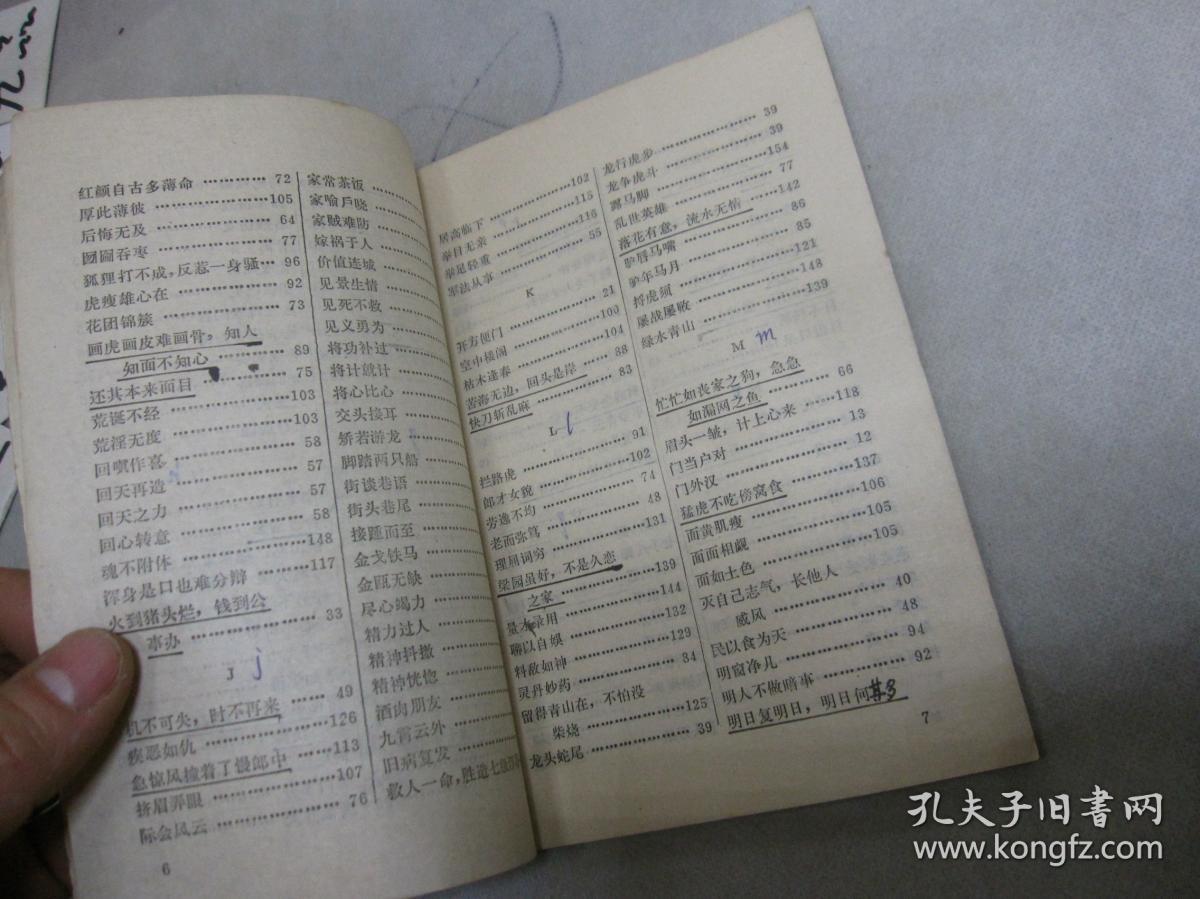 红颜自古多薄命 ………… 72
厚此薄彼 ………………105
后悔无及 ……………… 64
囫囵吞枣 ……………… 77
狐狸打不成，反惹一身骚… 96
虎瘦雄心在 …………… 92
花团锦簇 ……………… 73
画虎画皮难画骨，知人
知面不知心 ………… 89
还其本来面目 ………… 75
荒诞不经 ………………103
荒淫无度 ………………103
回嗔作喜 ……………… 58
回天再造 ……………… 57
回天之力 ……………… 57
回心转意 ……………… 58
魂不附体 ………………148
浑身是口也难分辩 ……117
火到猪头烂，钱到公
事办 ………………… 33
J j
机不可失，时不再来 …… 49
疾恶如仇 ………………126
急惊风撞着了慢郎中 ……113
挤眉弄眼 ………………107
际会风云 ……………… 76
6
家常茶饭
家喻戶晓
家贼难防
嫁祸于人
价值连城
见景生情
见死不救
见义勇为
将功补过
将计就计
将心比心
交头接耳
矫若游龙
脚踏两只船
街谈巷语
街头巷尾
接踵而至
金戈铁马
金瓯无缺
尽心竭力
精力过人
精神抖擞
精神恍惚
酒肉朋友
九霄云外
旧病复发
救人一命，胜造七级浮屠
居高临下 ………………102
举目无亲 ………………115
举足轻重 ………………116
军法从事 ……………… 55
K
开方便门 ……………… 21
空中楼阁 ………………100
枯木逢春 ………………104
苦海无边，回头是岸 …… 88
快刀斩乱麻 …………… 83
L l
拦路虎 ………………… 91
郎才女貌 ………………102
劳逸不均 ……………… 74
老而弥笃 ……………… 48
理屈词穷 ………………131
梁园虽好，不是久恋
之家 …………………139
量才录用 ………………144
聊以自娱 ………………132
料敌如神 ………………129
灵丹妙药 ……………… 34
留得青山在，不怕没
柴烧 …………………125
龙头蛇尾 ……………… 39
龙行虎步 ……………… 39
龙争虎斗 ……………… 39
露马脚 …………………154
乱世英雄 ……………… 77
落花有意，流水无情 ……142
驴唇马嘴 ……………… 86
驴年马月 ……………… 85
捋虎须 …………………121
屡战屡败 ………………148
绿水青山 ………………139
M m
忙忙如丧家之狗，急急
如漏网之鱼 ………… 66
眉头一皱，计上心来 ……118
门当户对 ……………… 13
门外汉 ………………… 12
猛虎不吃傍窝食 ………137
面黄肌瘦 ………………106
面面相觑 ………………105
面如土色 ………………105
灭自己志气，长他人
威风 ………………… 40
民以食为天 …………… 48
明窗净几 ……………… 94
明人不做暗事 ………… 92
明日复明日，明日何其多
7
孔夫子旧书网
www.kongfz.com